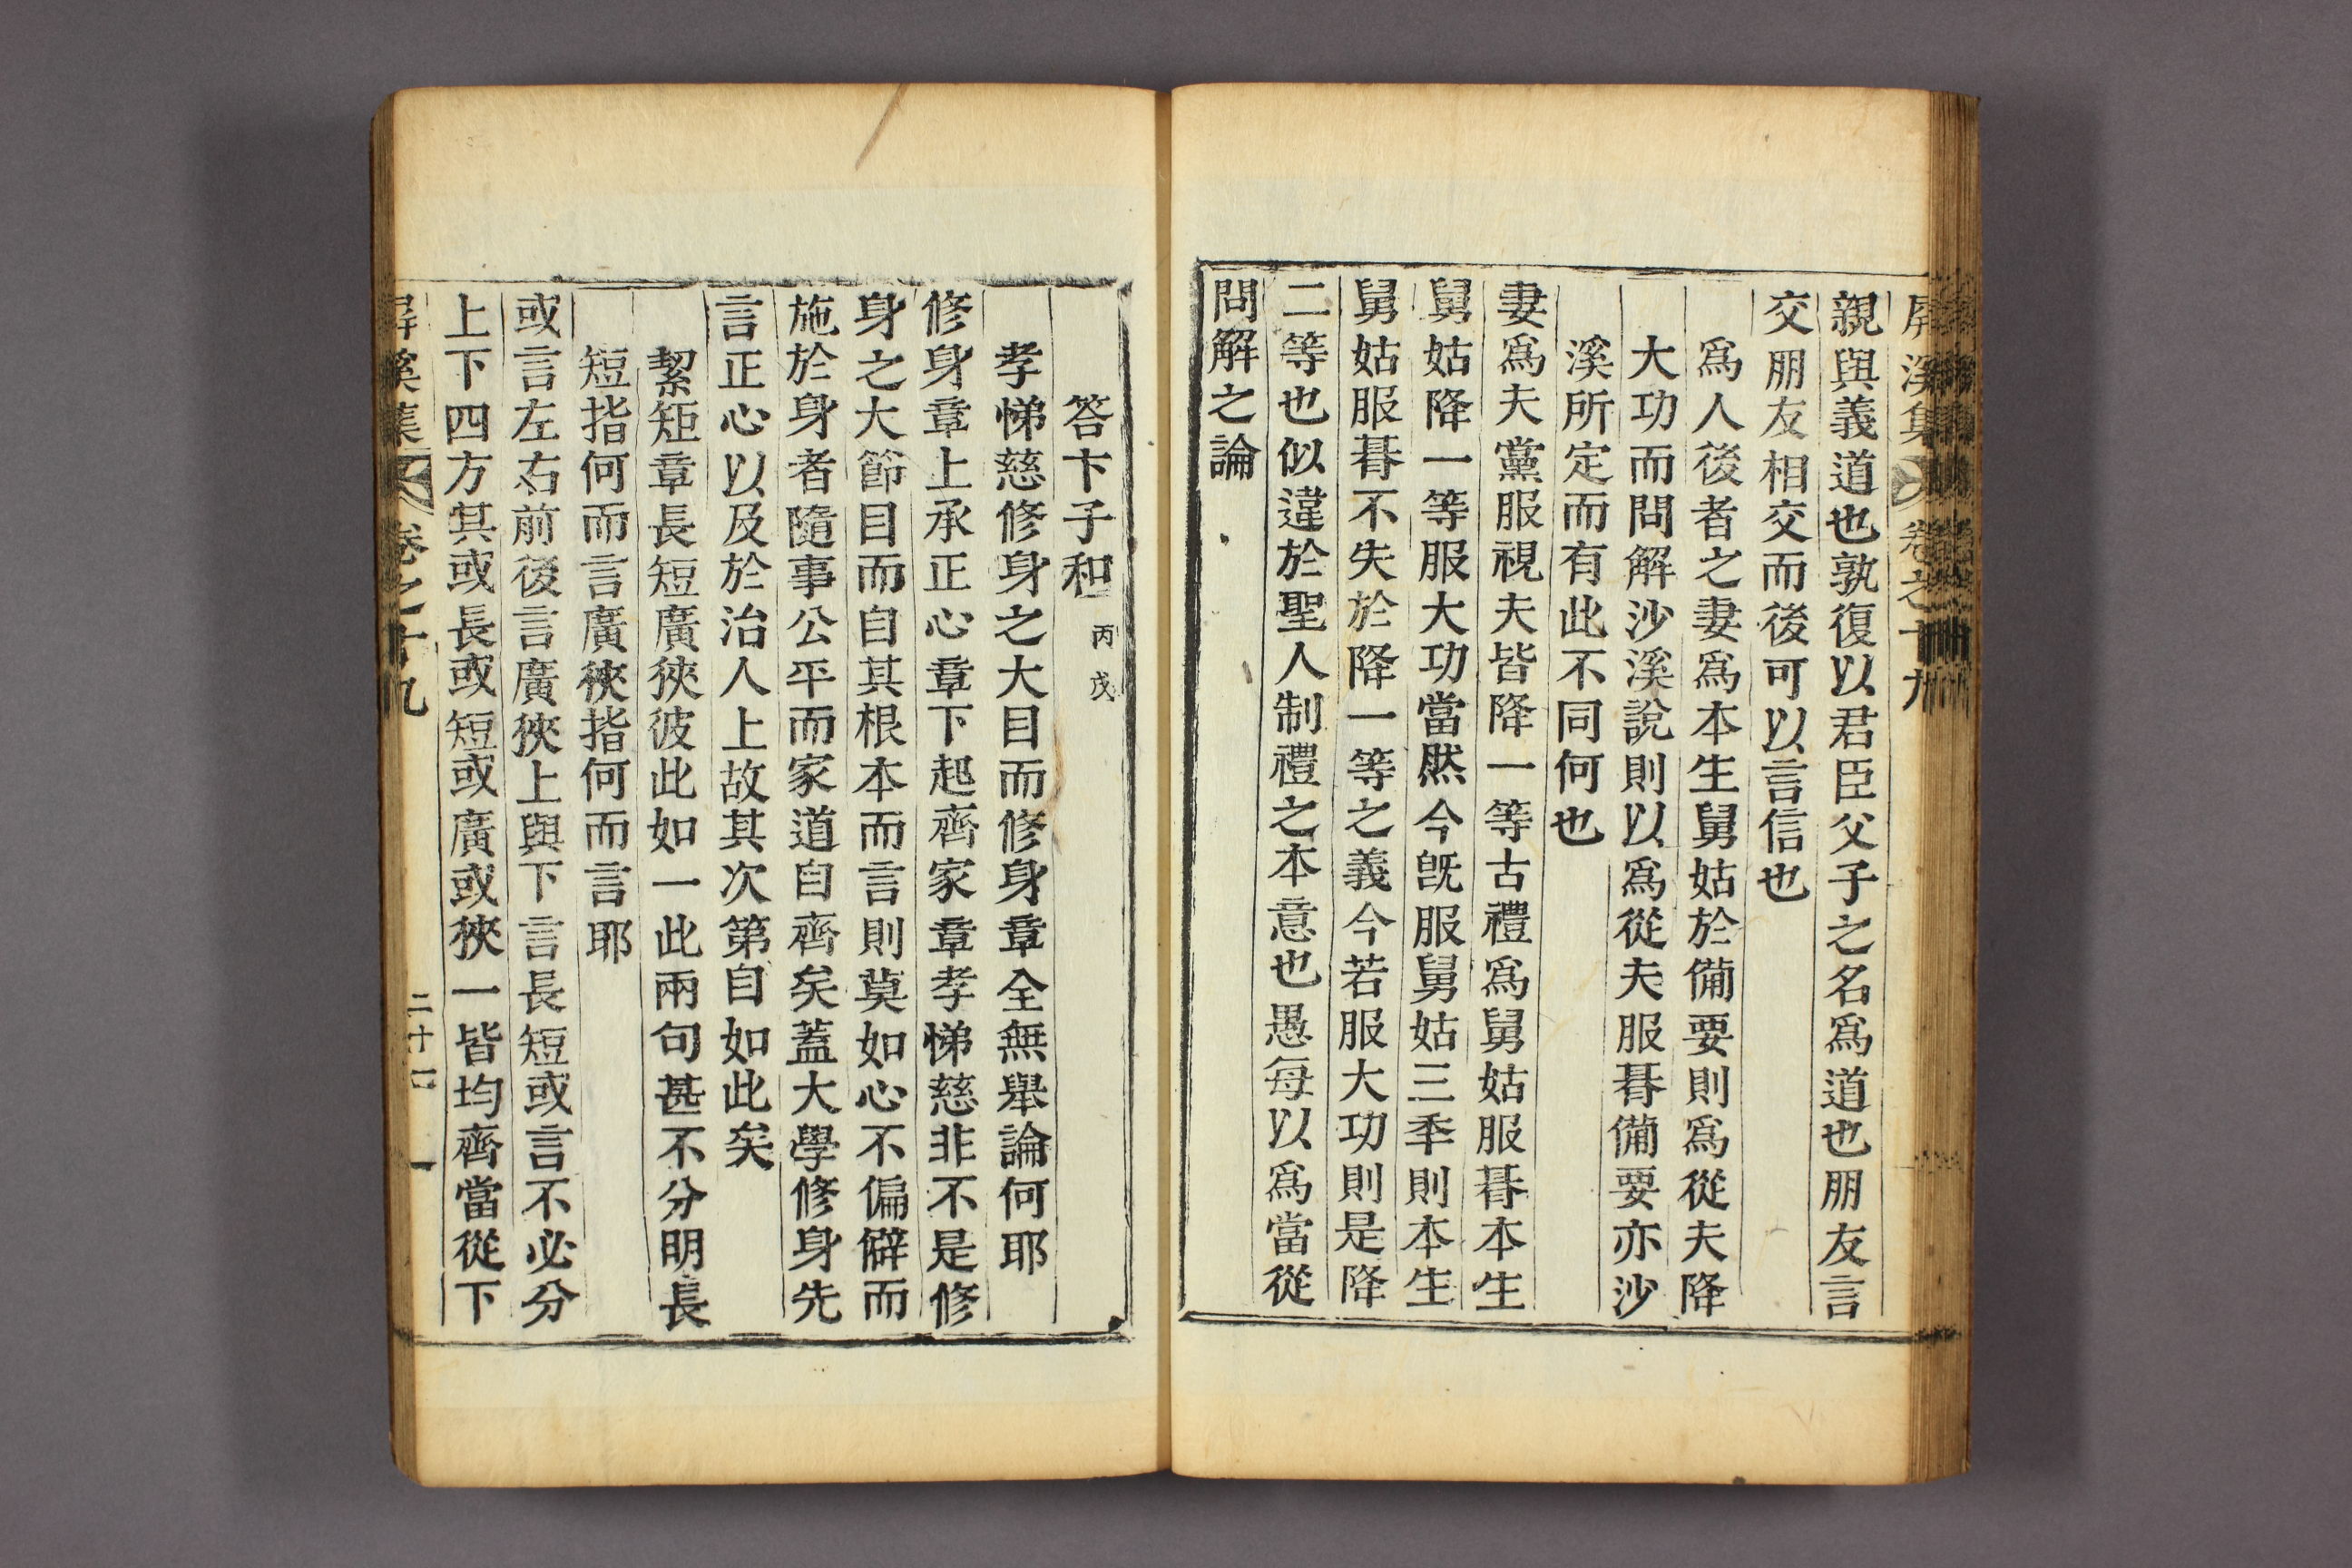 屛溪集 卷之十九
親與義道也孰復以君臣父子之名爲道也朋友言
交朋友相交而後可以言信也
爲人後者之妻爲本生舅姑於備要則爲從夫降
大功而問解沙溪說則以爲從夫服朞備要亦沙
溪所定而有此不同何也
妻爲夫黨服視夫皆降一等古禮爲舅姑服朞本生
舅姑降一等服大功當然今旣服舅姑三秊則本生
舅姑服朞不失於降一等之義今若服大功則是降
二等也似違於聖人制禮之本意也愚每以爲當從
問解之論
答卞子和 丙戌
孝悌慈修身之大目而修身章全無舉論何耶
修身章上承正心章下起齊家章孝悌慈非不是修
身之大節目而自其根本而言則莫如心不偏僻而
施於身者隨事公平而家道自齊矣蓋大學修身先
言正心以及於治人上故其次第自如此矣
絜矩章長短廣狹彼此如一此兩句甚不分明長
短指何而言廣狹指何而言耶
或言左右前後言廣狹上與下言長短或言不必分
上下四方其或長或短或廣或狹一皆均齊當從下
屛溪集 卷之十九 二十一